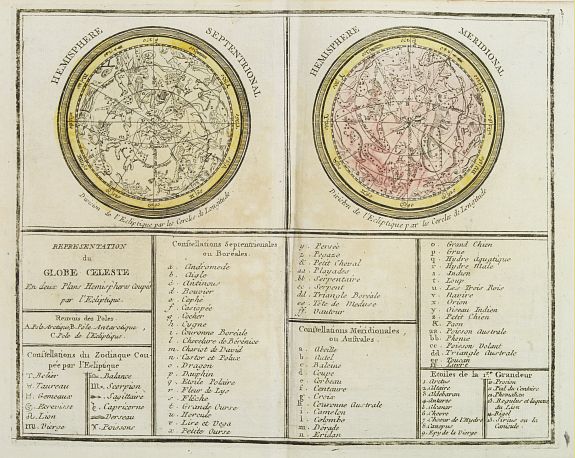 HEMISPHERE SEPTENTRIONAL
HEMISPHERE MERIDIONAL
Division de l'Ecliptique par les Cercles de Longitude
Division de l'Ecliptique par les Cercles de Longitude
REPRESENTATION
du
GLOBE CELESTE
En deux Plans Hemispheres Coupés
par l'Ecliptique.
Renvois des Poles
A. Pole Arctique, B. Pole Antarctique,
C. Pole de l'Ecliptique.
Constellations du Zodiaque Cou-
pée par l'Ecliptique
Belier
Taureau
Gemeaux
Ecrevisse
Lion
Vierge
Balance
Scorpion
Sagittaire
Capricorne
Verseau
Poissons
Constellations Septentrionales
ou Boréales.
a. Andromede
b. Aigle
c. Antinous
d. Bouvier
e. Cephé
f. Casiopée
g. Cocher
h. Cygne
i. Couronne Boréale
l. Chevelure de Bérénice
m. Chariot de David
n. Castor et Polux
o. Dragon
p. Dauphin
q. Etoile Polaire
r. Fleur de Lys
s. Flêche
t. Grande Ourse
u. Hercule
v. Lire et Vega
x. Petite Ourse
y. Persée
z. Pegaze
&. Petit Cheval
aa. Playades
bb. Serpentaire
cc. Serpent
dd. Triangle Boréale
ee. Tête de Meduse
ff. Vautour
Constellations Méridionales,
ou Australes.
a. Abeille
b. Autel
c. Baleine
d. Coupe
e. Corbeau
f. Centaure
g. Croix
h. Couronne Australe
i. Camelon
l. Colombe
m. Dorade
n. Eridan
o. Grand Chien
p. Grue
q. Hydre Aquatique
r. Hydre Male
s. Indien
t. Loup
u. Les Trois Rois
v. Navire
x. Orion
y. Oiseau Indien
z. Petit Chien
&. Paon
aa. Poisson Australe
bb. Phenix
cc. Poisson Volant
dd. Triangle Australe
ee. Toucan
ff. Lievre
Etoiles de la 1.ere Grandeur
1. Arctus
2. Altaire
3. Aldebaran
4. Antares
6. Chevre
7. Choeur de l'Hydre
8. Canopus
9. Epy de la Vierge
10. Procion
11. Pied du Centaure
12. Phomalhan
13. Regulus
du Lion
14. Rigel
15. Sirius ou la
Canicule.